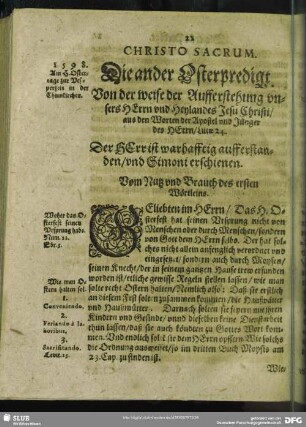 22
CHRISTO SACRUM.
1598.
Am H. Oster-
tage zur Ves-
perzeit in der
Thumkirchen.
Die ander Osterpredigt
Von der weise der Aufferstehung vn-
sers HErrn vnd Heylandes Jesu Christi/
aus den Worten der Apostel vnd Jünger
des HErrn/ Luce 24.
Der HErr ist warhafftig aufferstan-
den/ vnd Simoni erschienen.
Vom Nutz vnd Brauch des ersten
Wörtleins.
Woher das O-
sterfest seinen
Vrsprung habe.
Num. 11.
Ebr. 3.
Wie man O-
stern halten sol.
1.
Conveniendo.
2.
Feriando à la-
boribus.
3.
Sacrificando.
Levit. 23.
GEliebten im HErrn/ Das H. O-
sterfest hat seinen Vrsprung nicht von
Menschen oder durch Menschen/ sondern
von Gott dem HErrn selbs. Der hat sol-
ches nicht allein anfenglich verordnet vnd
eingesetzt/ sondern auch durch Moysen/
seinen Knecht/ der in seinem gantzen Hause trew erfunden
worden ist/ etliche gewisse Regeln stellen lassen/ wie man
solte recht Ostern halten/ Nemlich also: Daß sie erstlich
an diesem Fest solten zusammen kommen/ die Haußväter
vnd Haußmütter. Darnach solten sie feyren mit ihren
Kindern vnd Gesinde/ vnnd dieselben keine Dienstarbeit
thun lassen/ daß sie auch köndten zu Gottes Wort kom-
men. Vnd endlich solten sie dem HErrn opffern. Wie solches
die Ordnung ausweiset/ so im dritten Buch Moysis am
23. Cap. zu finden ist.
Wie
SLUB
DFG